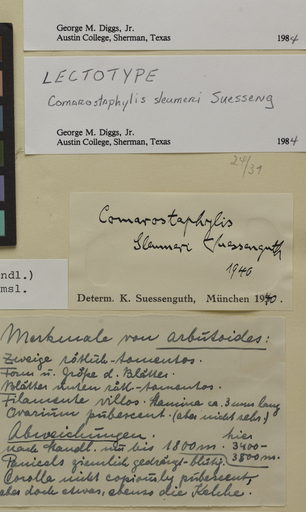 George M. Diggs, Jr.
Austin College, Sherman, Texas 1984
LECTOTYPE
Comarostaphylis sleumeri Suesseng
George M. Diggs, Jr.
Austin College, Sherman, Texas 1984
24/31
Comarostaphylis
Sleumeri Suessenguth
1940
ndl.)
msl.
Determ. K. Suessenguth, München 1940.
Merkmale von arbutoides:
Zweige rötlich-tomentos.
Form u. Größe d. Blätter.
Blätter unten röth-tomentos.
Filamente villos. Stamina ca. 3 mm lang
Ovarium pubescent. (aber nicht sehr)
Abweichungen. hier
nach Standl. nur bis 1800 m. 3400-
3800 m.
Panicula ziemlich gedrängt-blütig.
Corolla nicht copiously pubescent,
aber doch etwas, ebenso die Kelche.